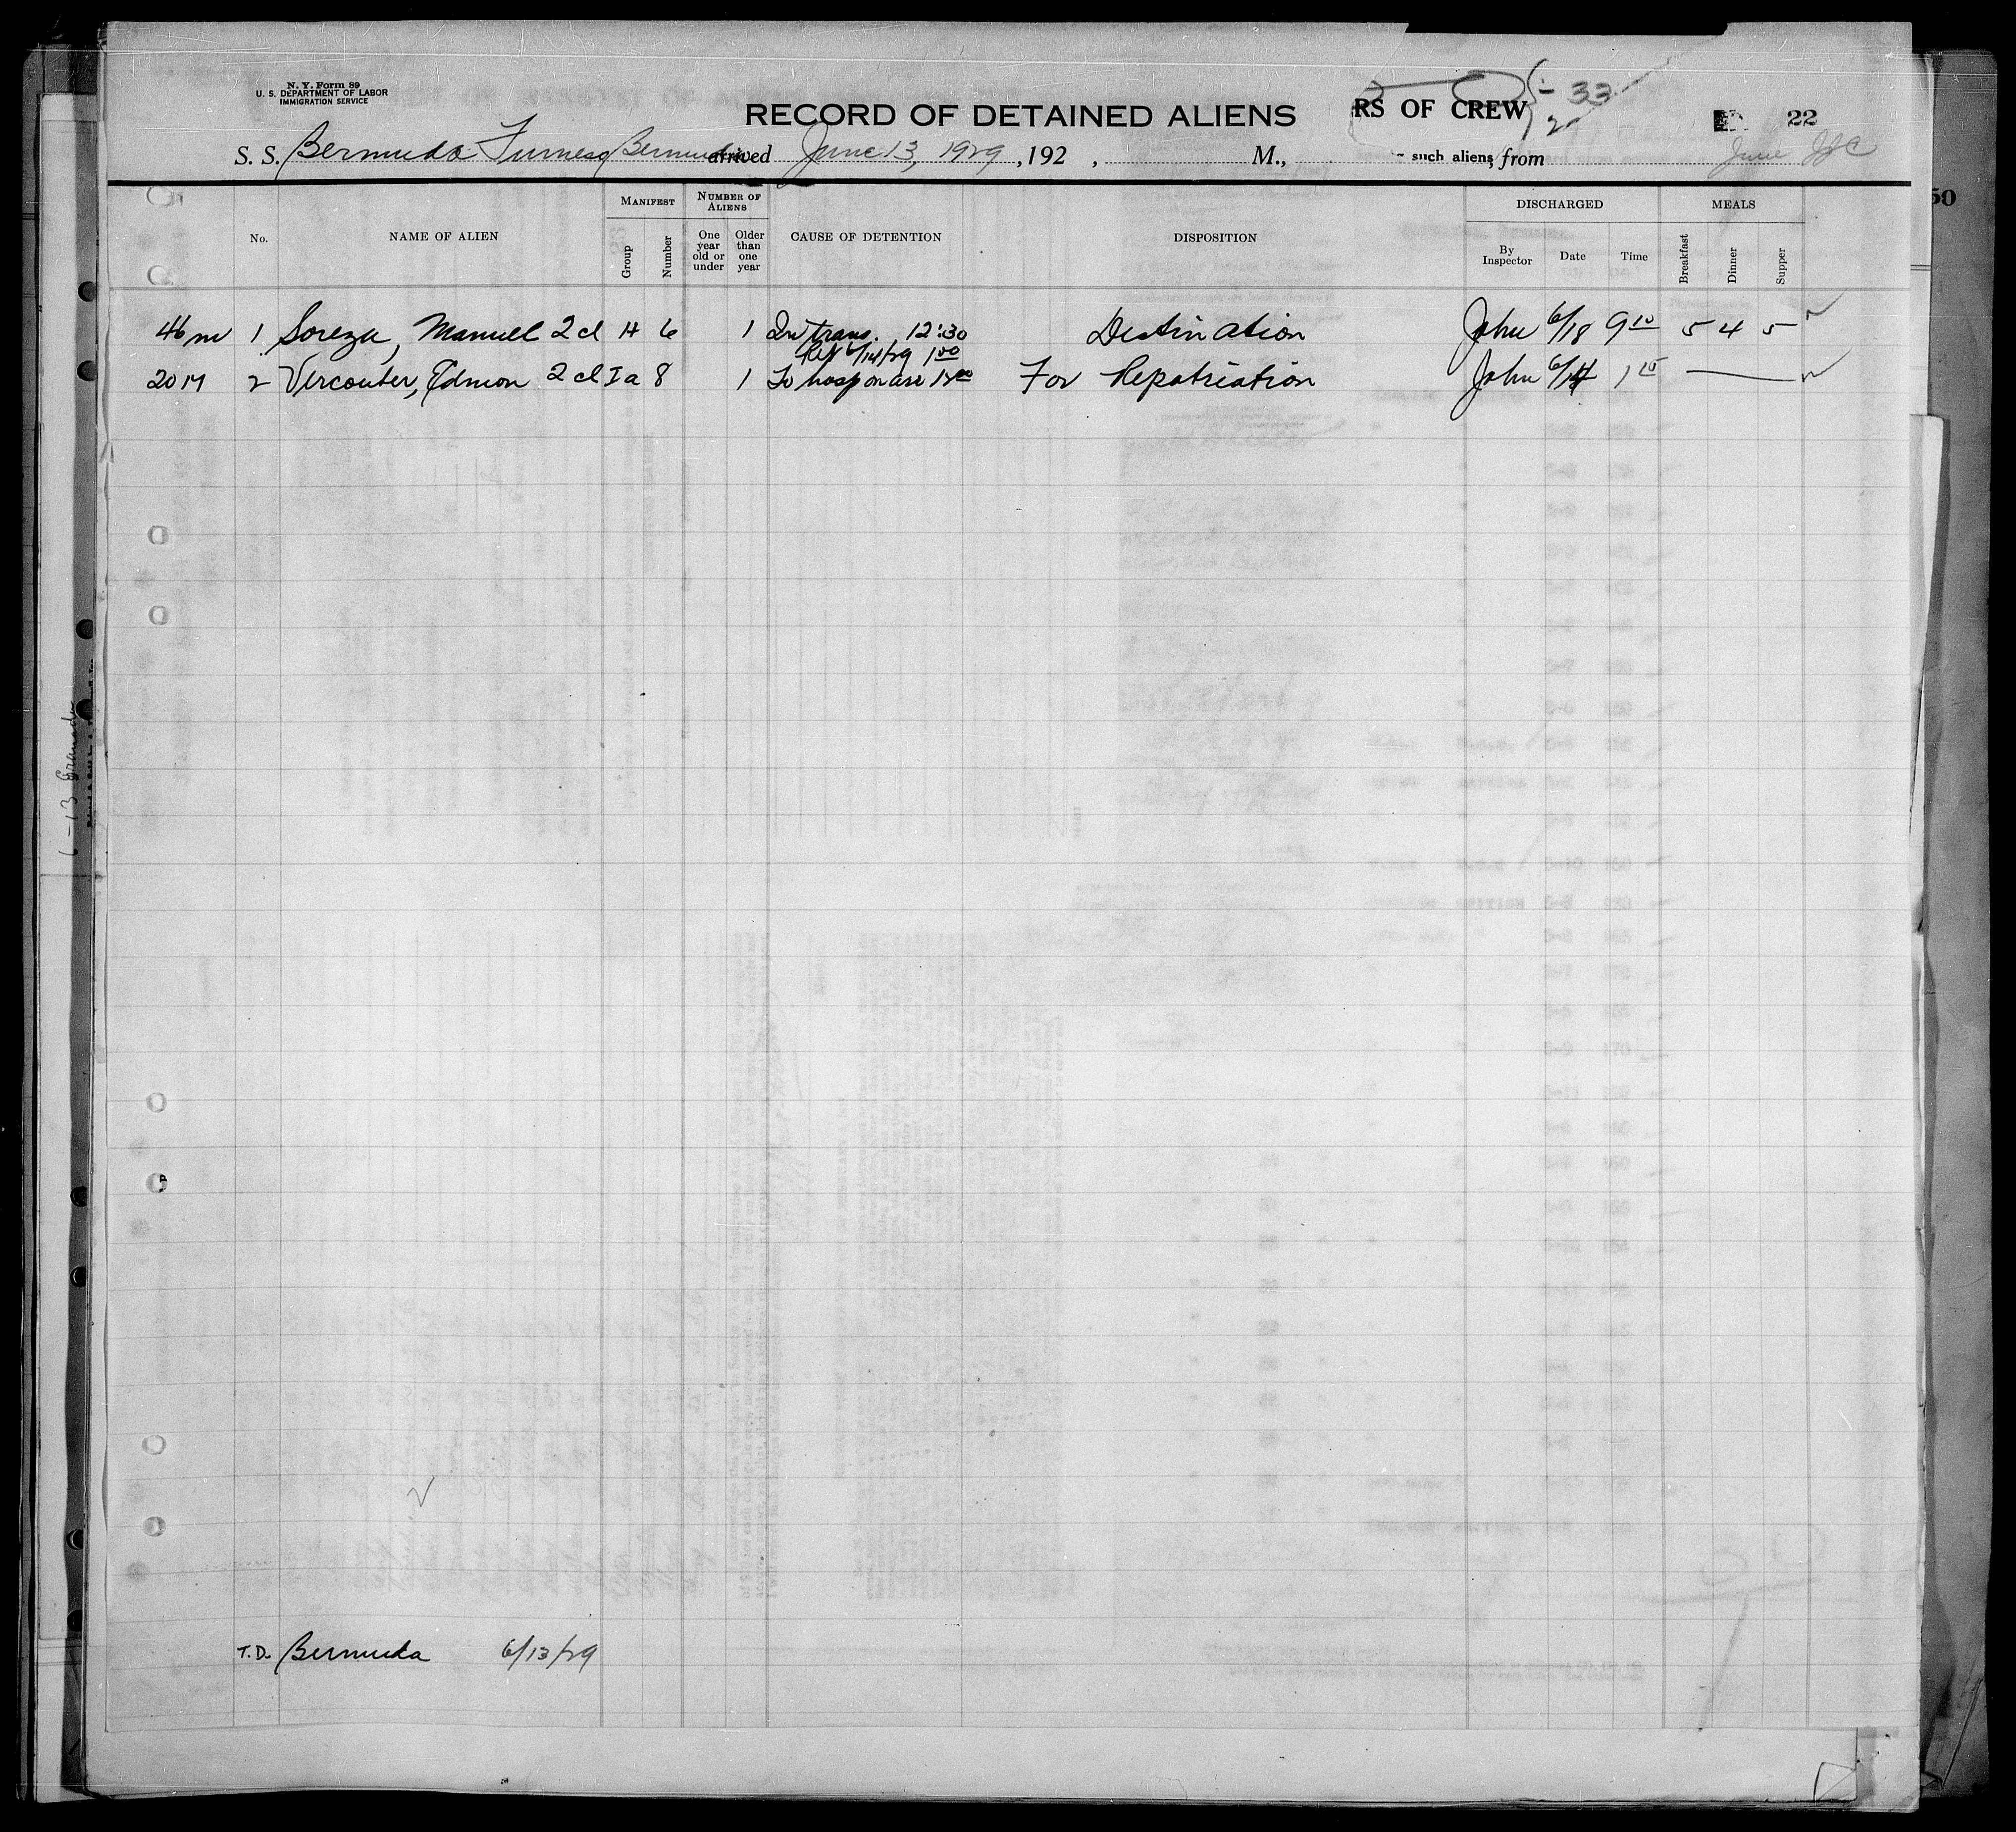 N. Y. Form 89
U. S. DEPARTMENT OF LABOR
IMMIGRATION SERVICE
RECORD OF DETAINED ALIENS RS OF CREW 33 22
2
S. S. Bermuda Furness Bermuda arrived June 13, 1929, 192 , M., such aliens, from June
50
MANIFEST NUMBER OF ALIENS DISCHARGED MEALS
No. NAME OF ALIEN Group Number One year old or under Older than one year CAUSE OF DETENTION DISPOSITION By Inspector Date Time Breakfast Dinner Supper
46 m 1 Soreza, Manuel 2 cl H 6 1 In trans. 12:30 Destination John 6/18 9 10 5 4 5
6/14/29 1 00
20 M 2 Vercouter, Edmon 2 cl I a 8 1 To hosp on arr 12 00 For Repatriation John 6/14 1 10
6-13 Granada
T.D. Bermuda 6/13/29